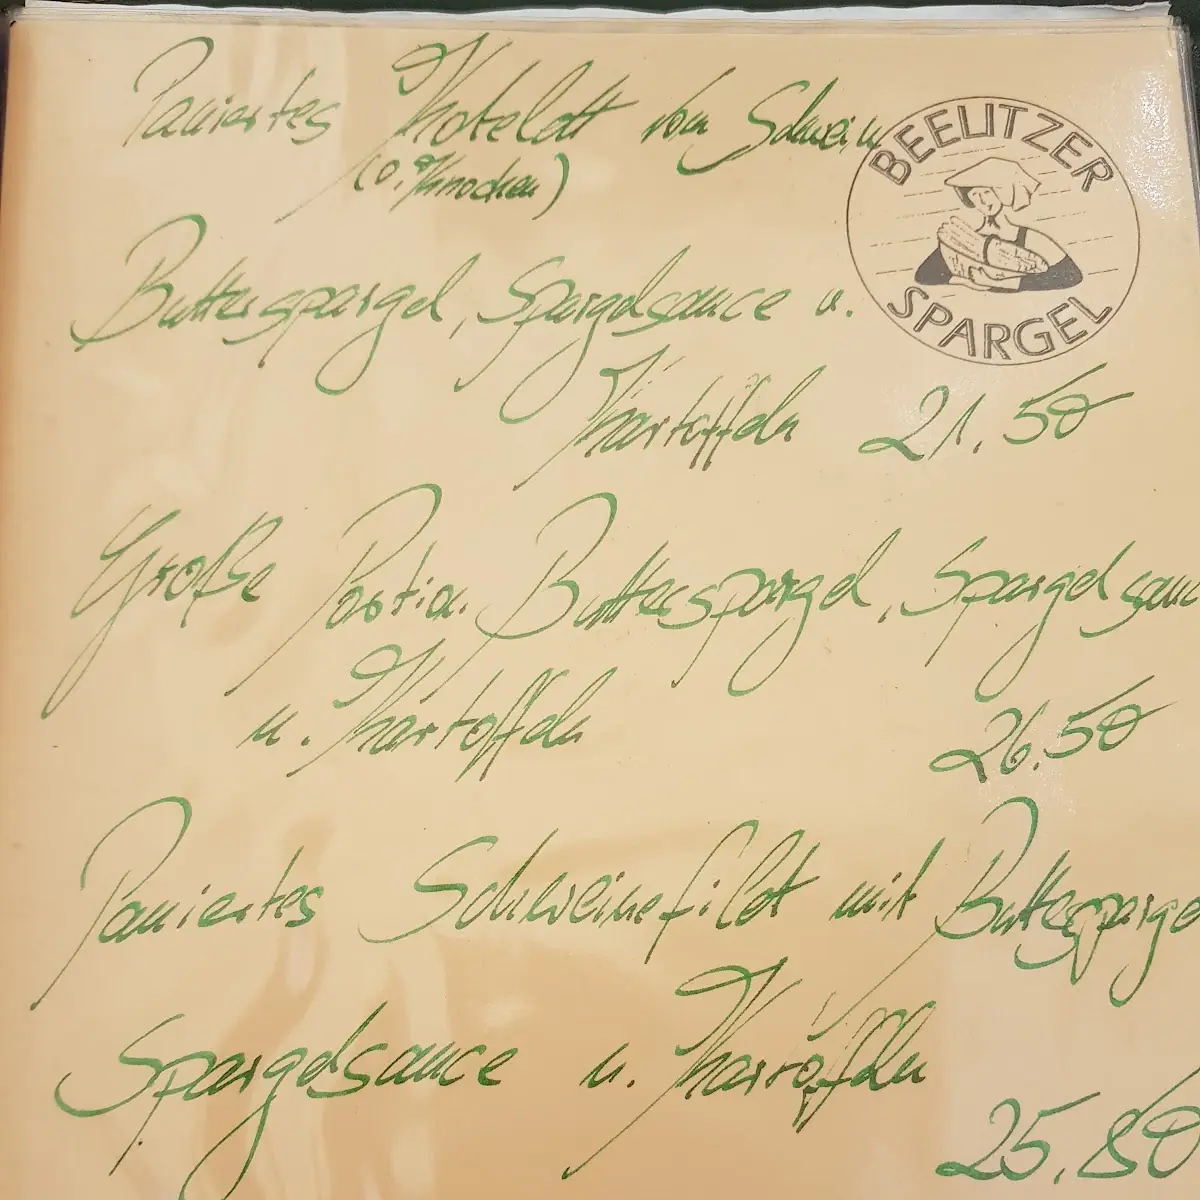 Paniertes Kotelett vom Schwein
(o. Knochen)
BEELITZER
SPARGEL
Butterspargel, Spargelsauce u.
Kartoffeln 21.50
Große Portion Butterspargel, Spargelsauc
u. Kartoffeln
26.50
Paniertes Schweinefilet mit Butterspargel
Spargelsauce u. Kartoffeln
25.80